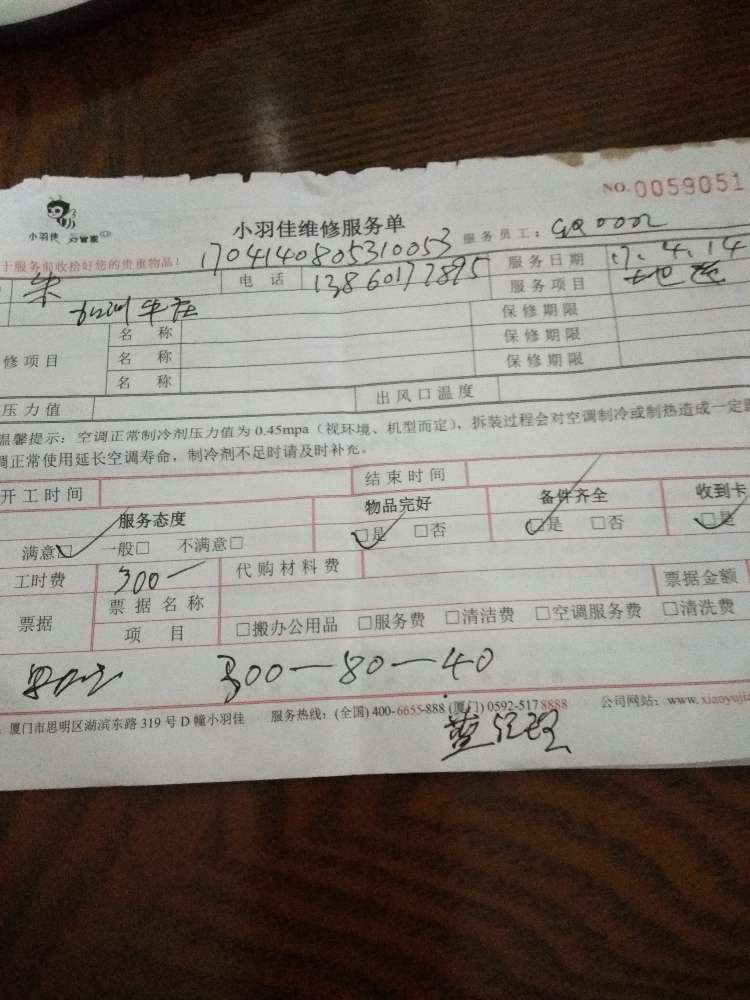 NO.0059051
小羽佳 好管家
小羽佳维修服务单
于服务前收拾好您的贵重物品！ 1704140805310053 服务员工：GQ0002
朱 电 话 13860177895 服务日期 17.4.14
服务项目
修项目 名 称 保修期限
名 称 保修期限
名 称 保修期限
压力值 出风口温度
温馨提示：空调正常制冷剂压力值为 0.45mpa（视环境、机型而定），拆装过程会对空调制冷或制热造成一定
调正常使用延长空调寿命，制冷剂不足时请及时补充。
开工时间 结束时间
服务态度 物品完好 备件齐全 收到卡
满意□ 一般□ 不满意□ □是 □否 □是 □否 □是
工时费 300一 代购材料费
票据 票据名称 票据金额
项 目 □搬办公用品 □服务费 □清洁费 □空调服务费 □清洗费
300—80—40
厦门市思明区湖滨东路 319 号 D 幢小羽佳 服务热线：(全国) 400-6655-888 (厦门) 0592-5178888 公司网站：www.xiaoyujia
经理